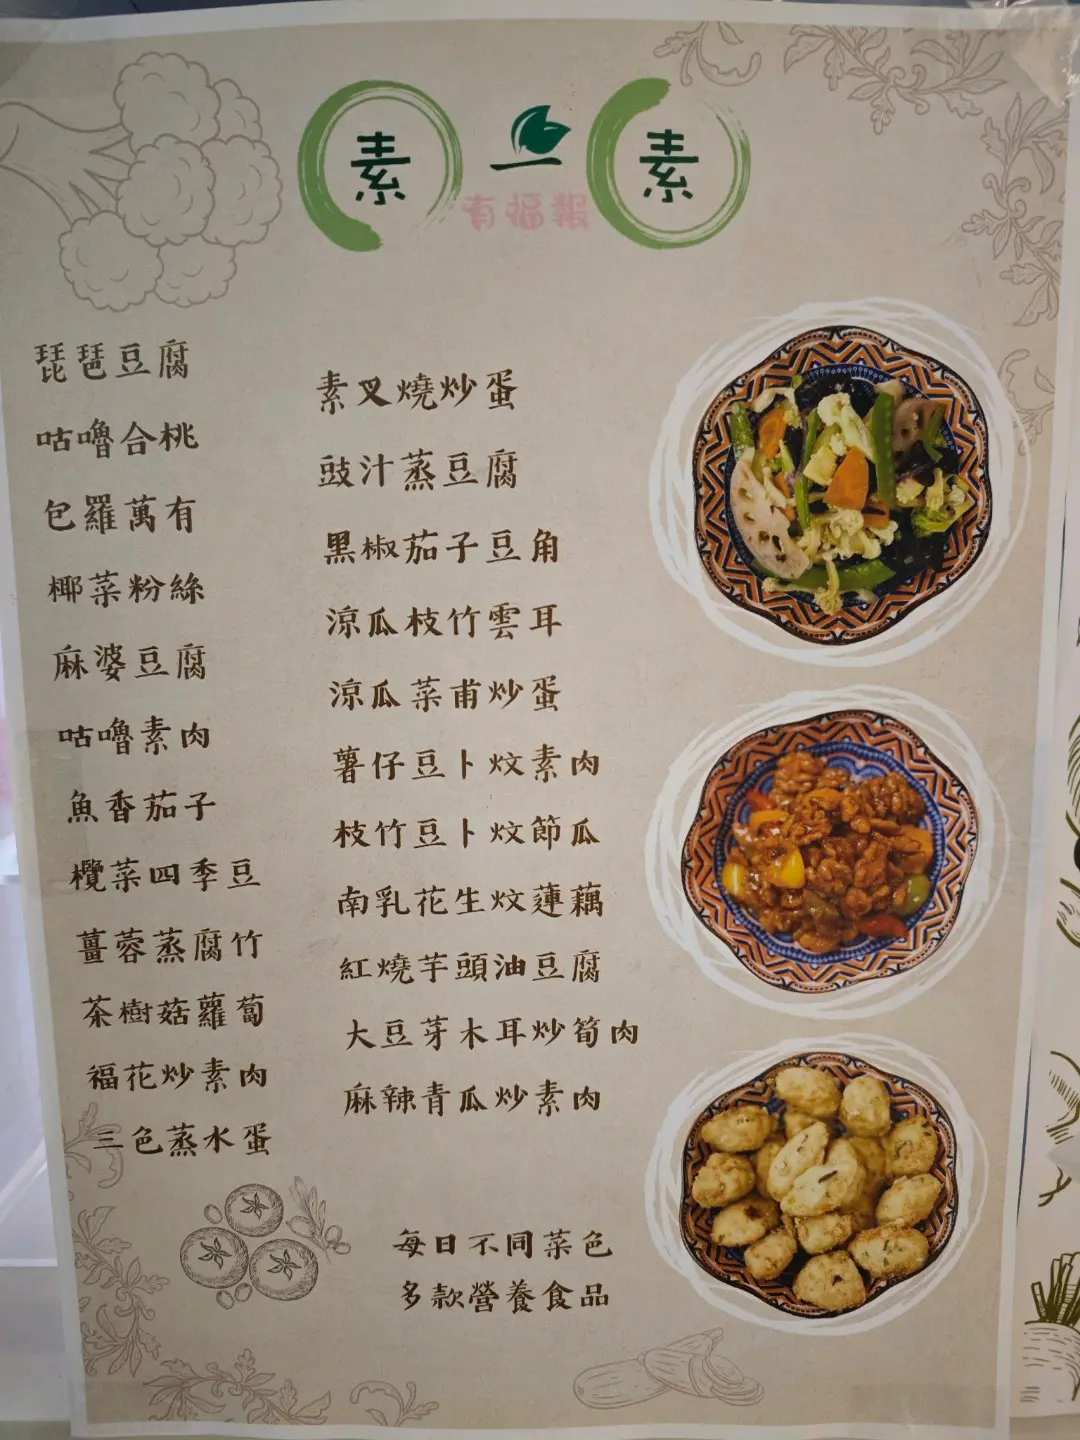 素一素
有福報
琵琶豆腐
咕嚕合桃
包羅萬有
椰菜粉絲
麻婆豆腐
咕嚕素肉
魚香茄子
欖菜四季豆
薑蓉蒸腐竹
茶樹菇蘿蔔
福花炒素肉
三色蒸水蛋
素叉燒炒蛋
豉汁蒸豆腐
黑椒茄子豆角
涼瓜枝竹雲耳
涼瓜菜甫炒蛋
薯仔豆卜炆素肉
枝竹豆卜炆節瓜
南乳花生炆蓮藕
紅燒芋頭油豆腐
大豆芽木耳炒筍肉
麻辣青瓜炒素肉
每日不同菜色
多款營養食品